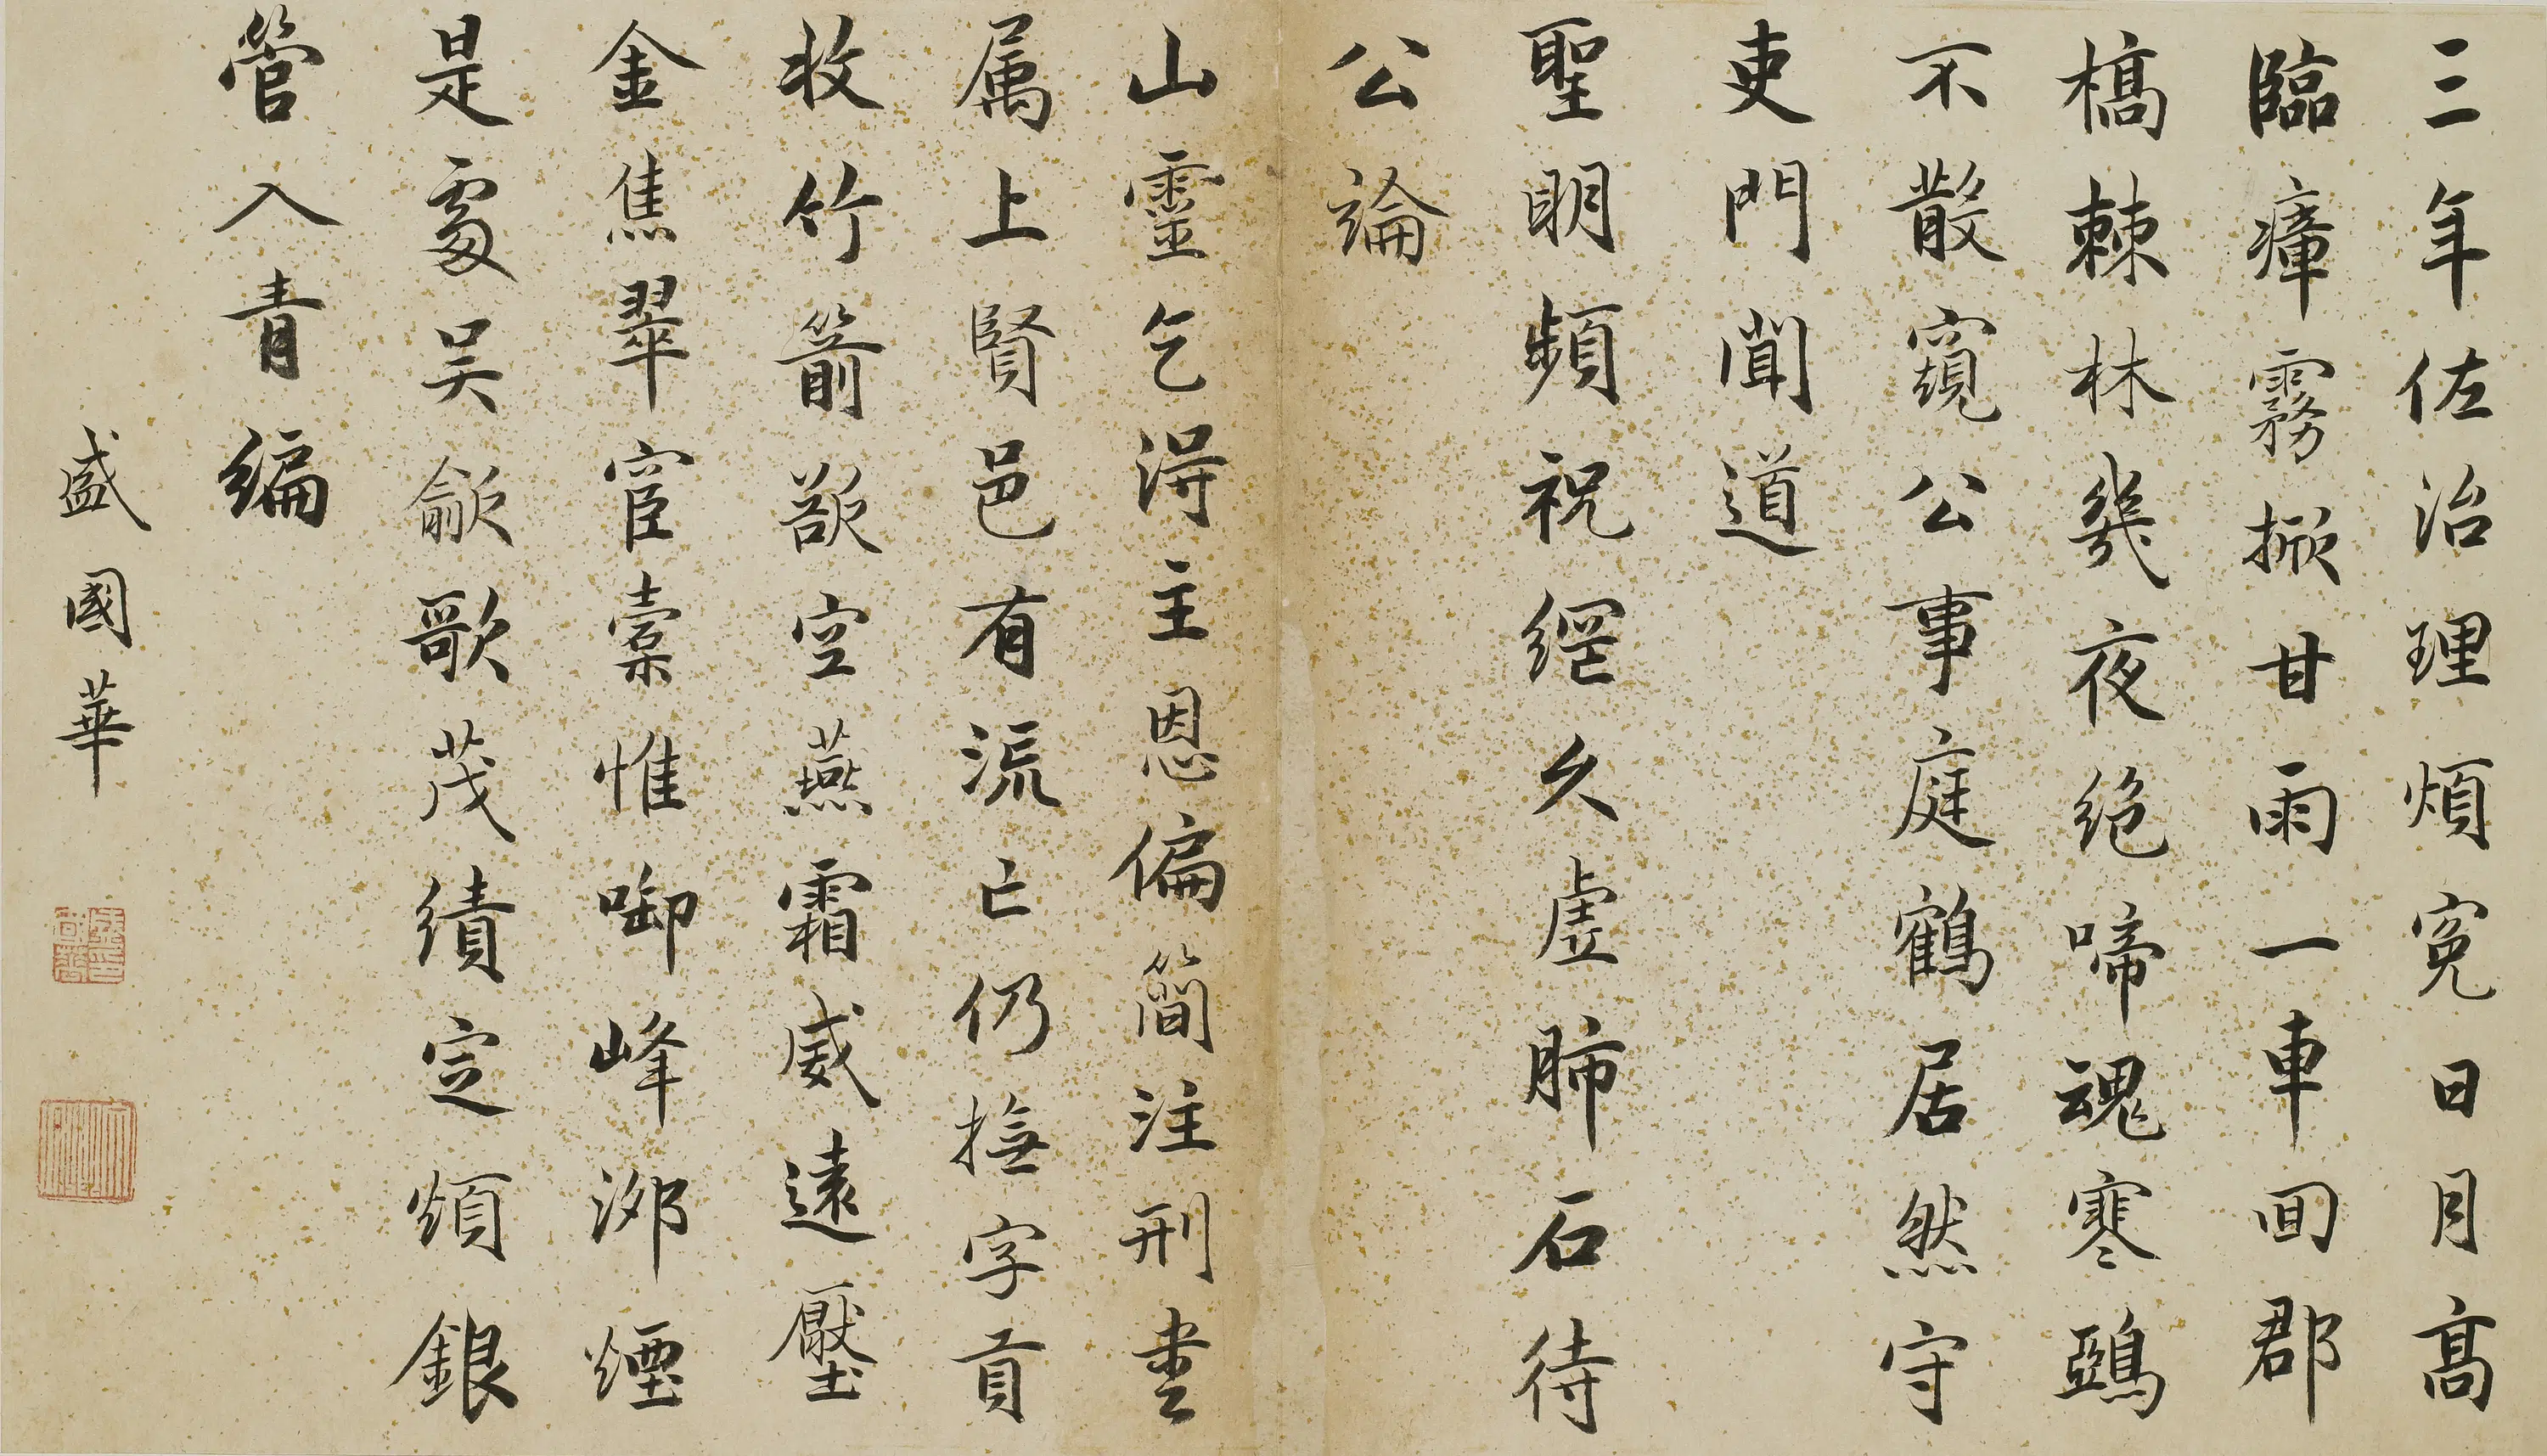 三年佐治理煩冤日月高
臨瘴霧掀甘雨一車回郡
檣棘林幾夜絕啼魂寒鵶
不散窺公事庭鶴居然守
吏門聞道
聖明頻祝網久虛肺石待
公論
山靈乞得主恩偏簡注刑書
属上賢邑有流亡仍撫字貢
收竹箭欲空燕霜威遠壓
金焦翠宦橐惟啣峰泖煙
是處吳歈歌茂績定煩銀
管入青編
盛國華